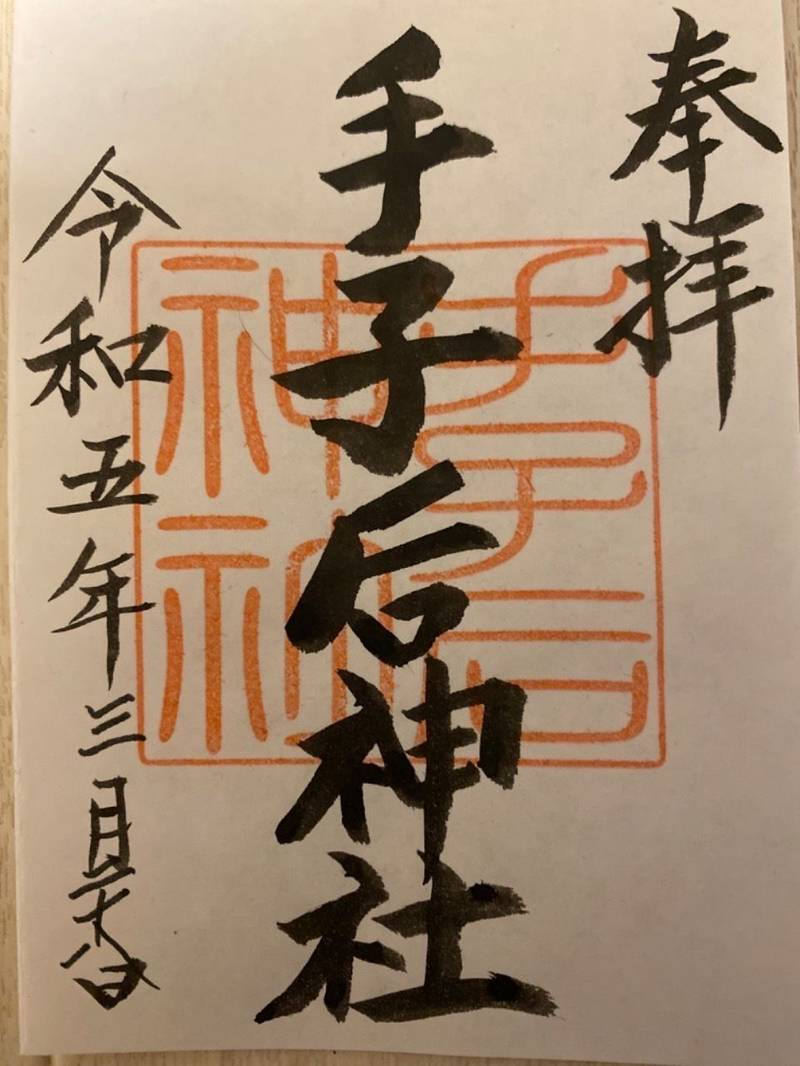 奉拝
手子后神社
令和五年三月
手子后神社